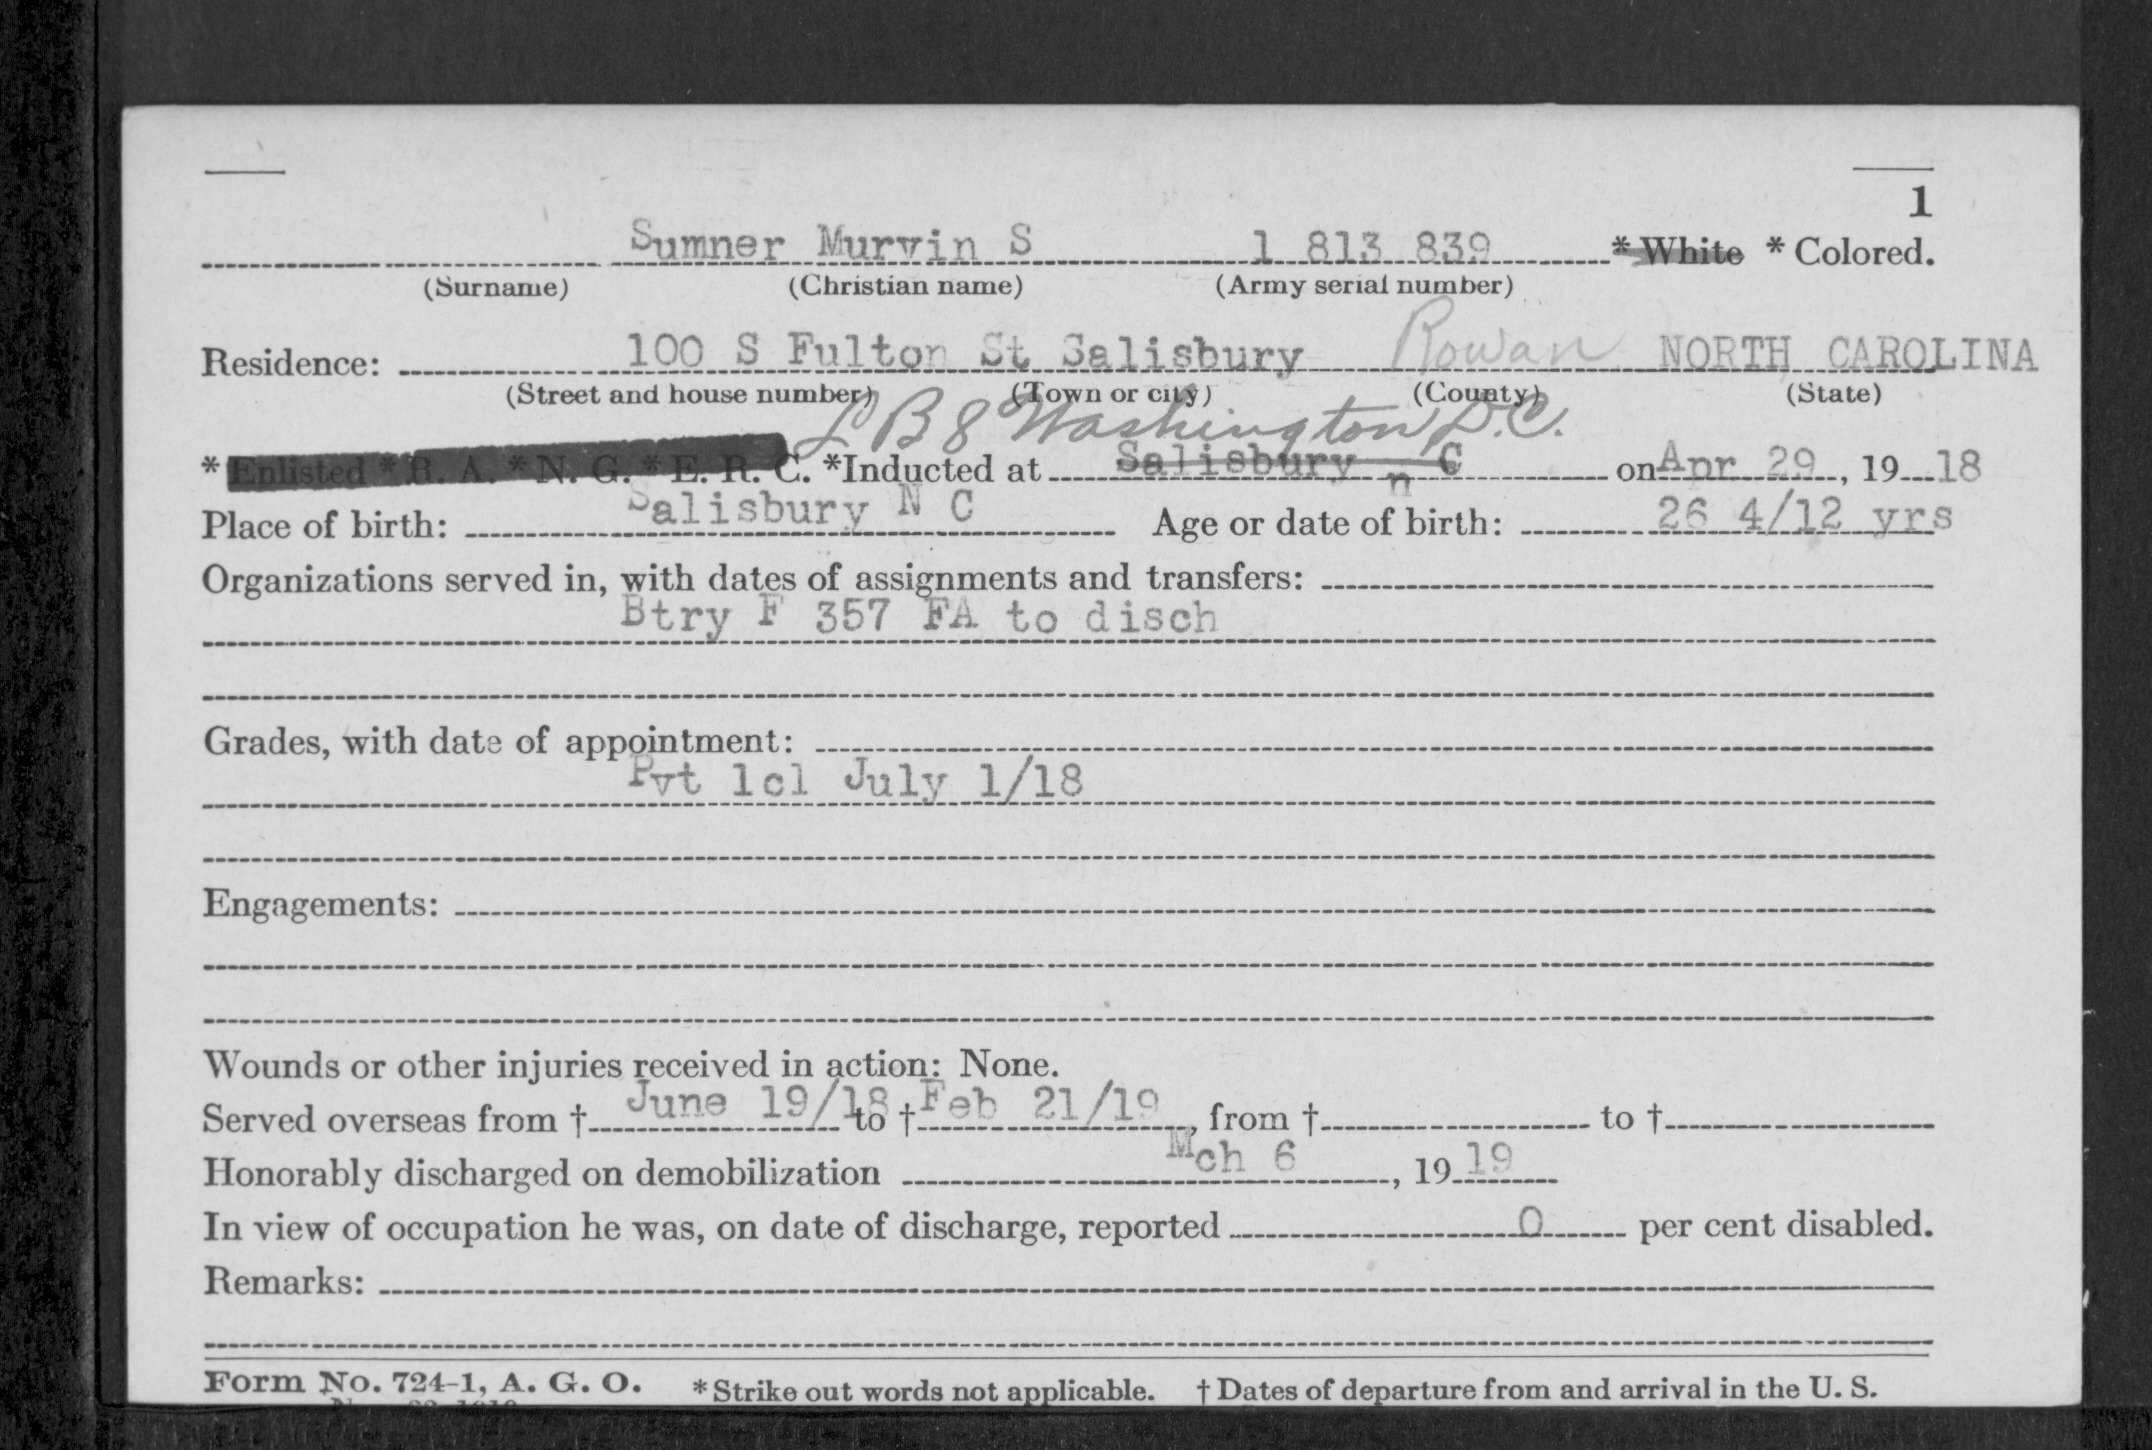 1
Sumner Murvin S 1 813 839 * White * Colored.
(Surname) (Christian name) (Army serial number)
Residence: 100 S Fulton St Salisbury Rowan NORTH CAROLINA
(Street and house number) (Town or city) (County) (State)
L B 8 Washington D.C.
* Enlisted * R. A. * N. G. * E. R. C. *Inducted at Salisbury n C on Apr 29, 19 18
Place of birth: Salisbury N C Age or date of birth: 26 4/12 yrs
Organizations served in, with dates of assignments and transfers:
Btry F 357 FA to disch
Grades, with date of appointment:
Pvt 1cl July 1/18
Engagements:
Wounds or other injuries received in action: None.
Served overseas from † June 19/18 to † Feb 21/19, from † to †
Honorably discharged on demobilization Mch 6, 19 19
In view of occupation he was, on date of discharge, reported 0 per cent disabled.
Remarks:
Form No. 724-1, A. G. O. * Strike out words not applicable. † Dates of departure from and arrival in the U. S.